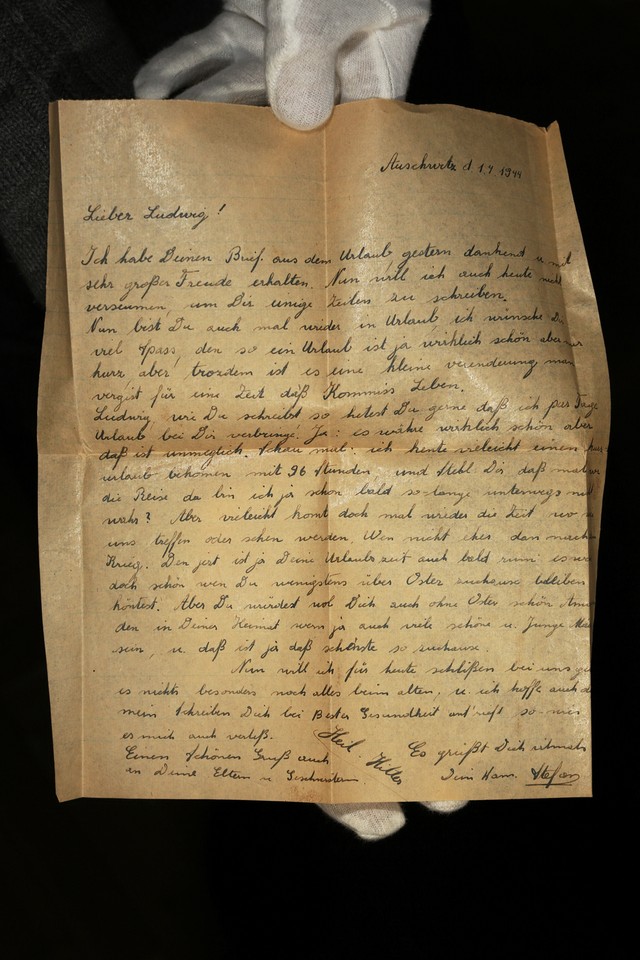 Auschwitz d. 1.4.1944
Lieber Ludwig!
Ich habe Deinen Brief aus dem Urlaub gestern dankend u mit
sehr großer Freude erhalten. Nun will ich auch heute nicht
verseumen, um Dir einige Zeilen zu schreiben.
Nun bist Du auch mal wieder in Urlaub ich wünsche Dir
viel Spass, den so ein Urlaub ist ja wirklich schön aber nur
kurz aber trozdem ist es eine kleine verenderung man
vergist für eine Zeit daß Kommiss Leben.
Ludwig wie Du schreibst so hetest Du gerne daß ich par Tage
Urlaub bei Dir verbringe. Ja: es währe wirklich schön aber
daß ist unmeglich. Schau mal: ich kente vieleicht einen
urlaub bekomen mit 96 Stunden und Stehl Dir daß mal vor
die Reise da bin ich ja schon bald so-lange unterwegs nicht
wahr? Aber vieleicht komt doch mal wieder die Zeit wo
uns treffen oder sehen werden. Wen nicht eher dan nach
Krieg. Den jezt ist ja Deine Urlaubszeit auch bald rum es
doch schön wen Du wenigstens über Oster zuhause bleiben
köntest. Aber Du würdest wol Dich auch ohne Oster schön
den in Deiner Heimat wern ja auch viele schöne u. Junge
sein, u. daß ist ja daß schönste so zuhause.
Nun will ich für heute schlißen bei uns
es nichts besonders noch alles beim alten, u. ich hoffe auch
mein Schreiben Dich bei Bester Gesundheit antrieft so wies
es mich auch verläß.
Heil Hitler
Es grüßt Dich
Einen Schönen Gruß auch
an Deine Eltern u Geschwistern
Dein Kam. Stefan